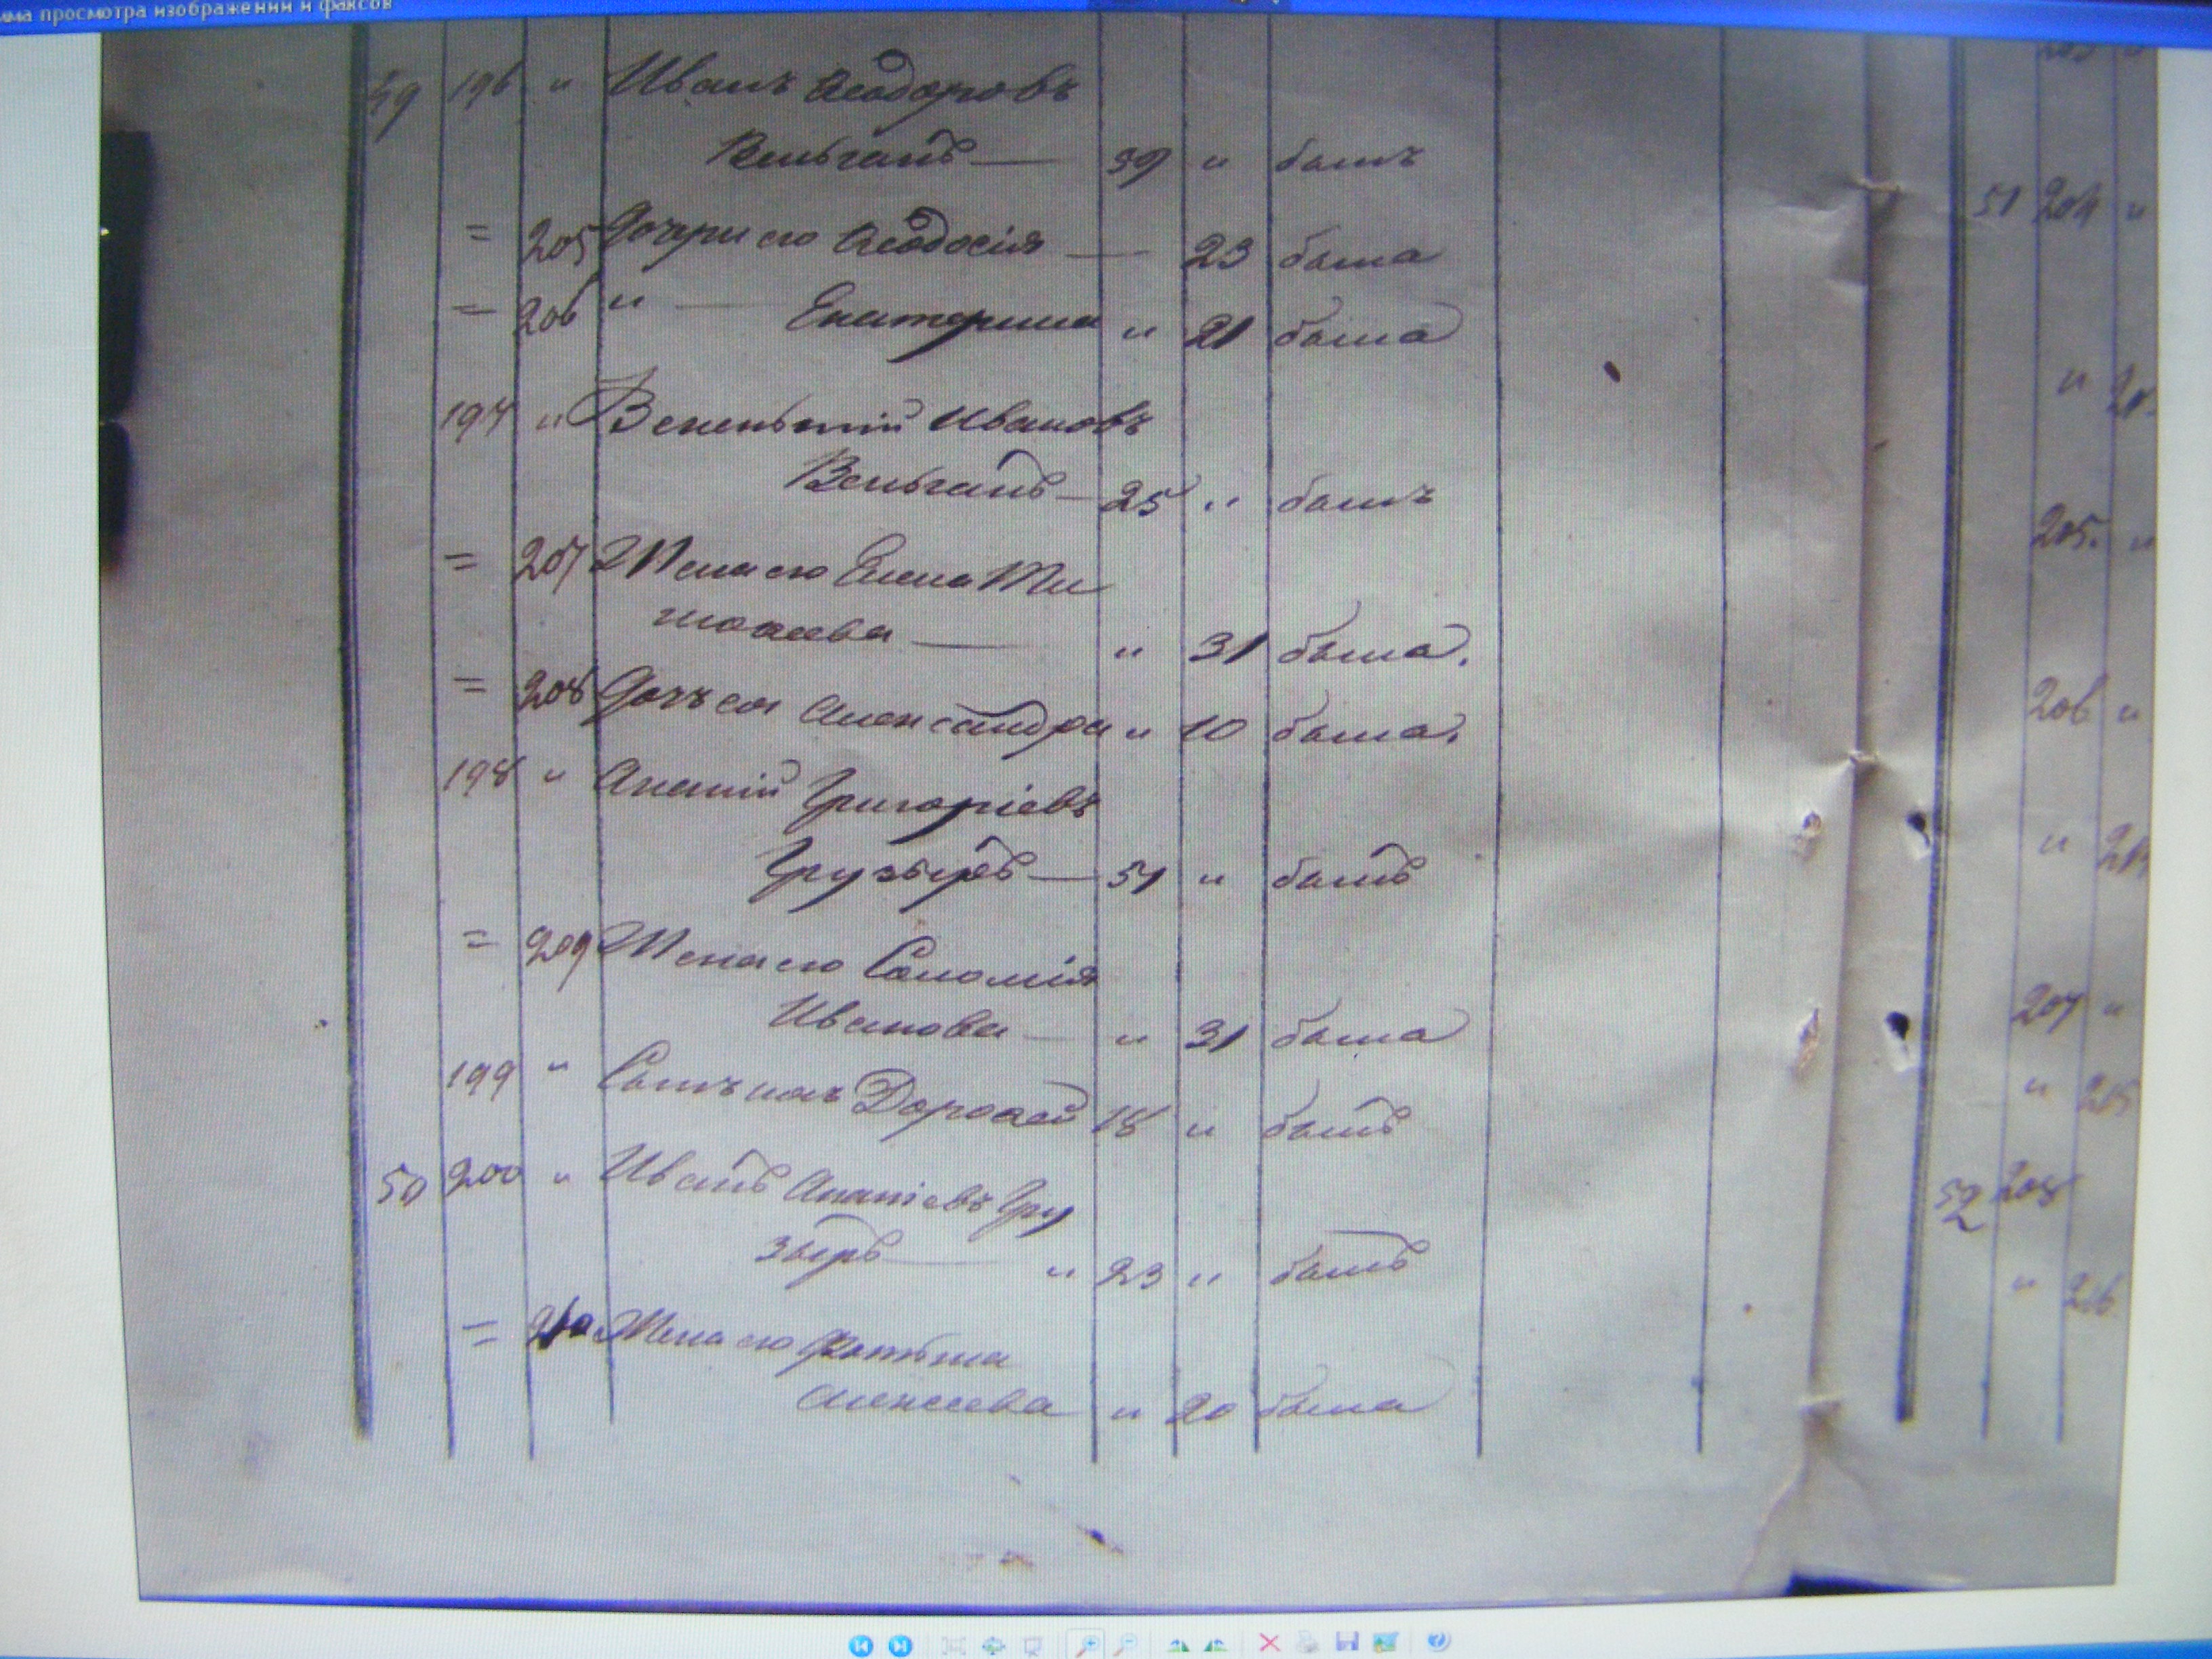 мма просмотра изображений и факсов
49 196 " Иванъ Ѳеодоровъ
39 " былъ
= 205 Дочери его Ѳеодосія — 23 была
= 206 " — Екатерина " 21 была
197 " Ивановъ
25 " былъ
= 207 Жена его Елена Ти
моѳеева — " 31 была.
= 208 Дочь его Александра " 10 была.
198 " Ананій Григоріевъ
Грузырь — 51 " былъ
= 209 Жена его Соломія
Иванова — " 31 была
199 " Сынъ ихъ Дороѳей 18 " былъ
50 200 " Иванъ Ананіевъ Гру
зырь — " 23 " былъ
= 210 Жена его Фотинія
Алексеева " 20 была
51 204 "
"
205. "
206 "
"
207 "
" 215
52 208
" 216